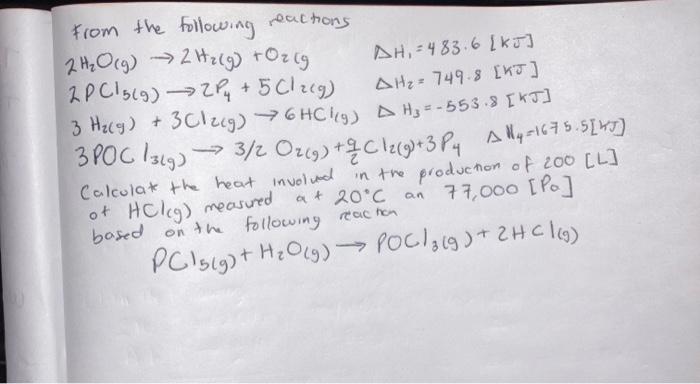 From the following reactions
2H₂O(g) → 2H₂(g) + O₂(g ΔH₁ = 483.6 [kJ]
2PCl₅(g) → 2P₄ + 5Cl₂(g) ΔH₂ = 749.8 [kJ]
3H₂(g) + 3Cl₂(g) → 6HCl(g) ΔH₃ = -553.8 [kJ]
3POCl₃(g) → 3/2 O₂(g) + 9/2 Cl₂(g) + 3P₄ ΔH₄ = 1675.5 [kJ]
Calculate the heat involved in the production of 200 [L]
of HCl(g) measured at 20°C an 77,000 [Pa]
based on the following reaction
PCl₅(g) + H₂O(g) → POCl₃(g) + 2HCl(g)